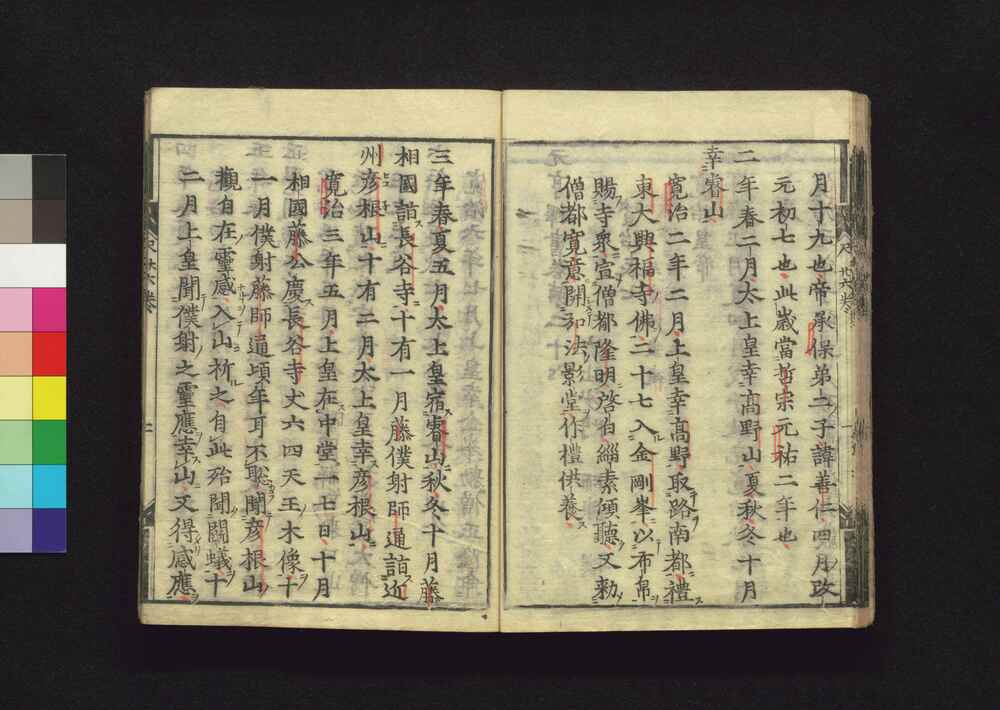 月十九也帝承保第二子諱善仁四月改
元初七也此歳當哲宗元祐二年也
二年春二月太上皇幸高野山夏秋冬十月
幸睿山
寛治二年二月上皇幸高野取路南都禮
東大興福寺佛二十七入金剛峯以布帛
賜寺衆宣僧都隆明啓白緇素傾聽又勅
僧都寛意開加法影堂作禮供養
三年春夏五月太上皇宿睿山秋冬十月藤
相國詣長谷寺十有一月藤僕射師通詣近
州彦根山十有二月太上皇幸彦根山
寛治三年五月上皇在中堂一七日十月
相國藤公慶長谷寺丈六四天王木像十
一月僕射藤師通頃年耳不聡聞彦根山
觀自在靈感入山祈之自此殆聞鬪蟻十
二月上皇聞僕射之靈應幸山又得感應